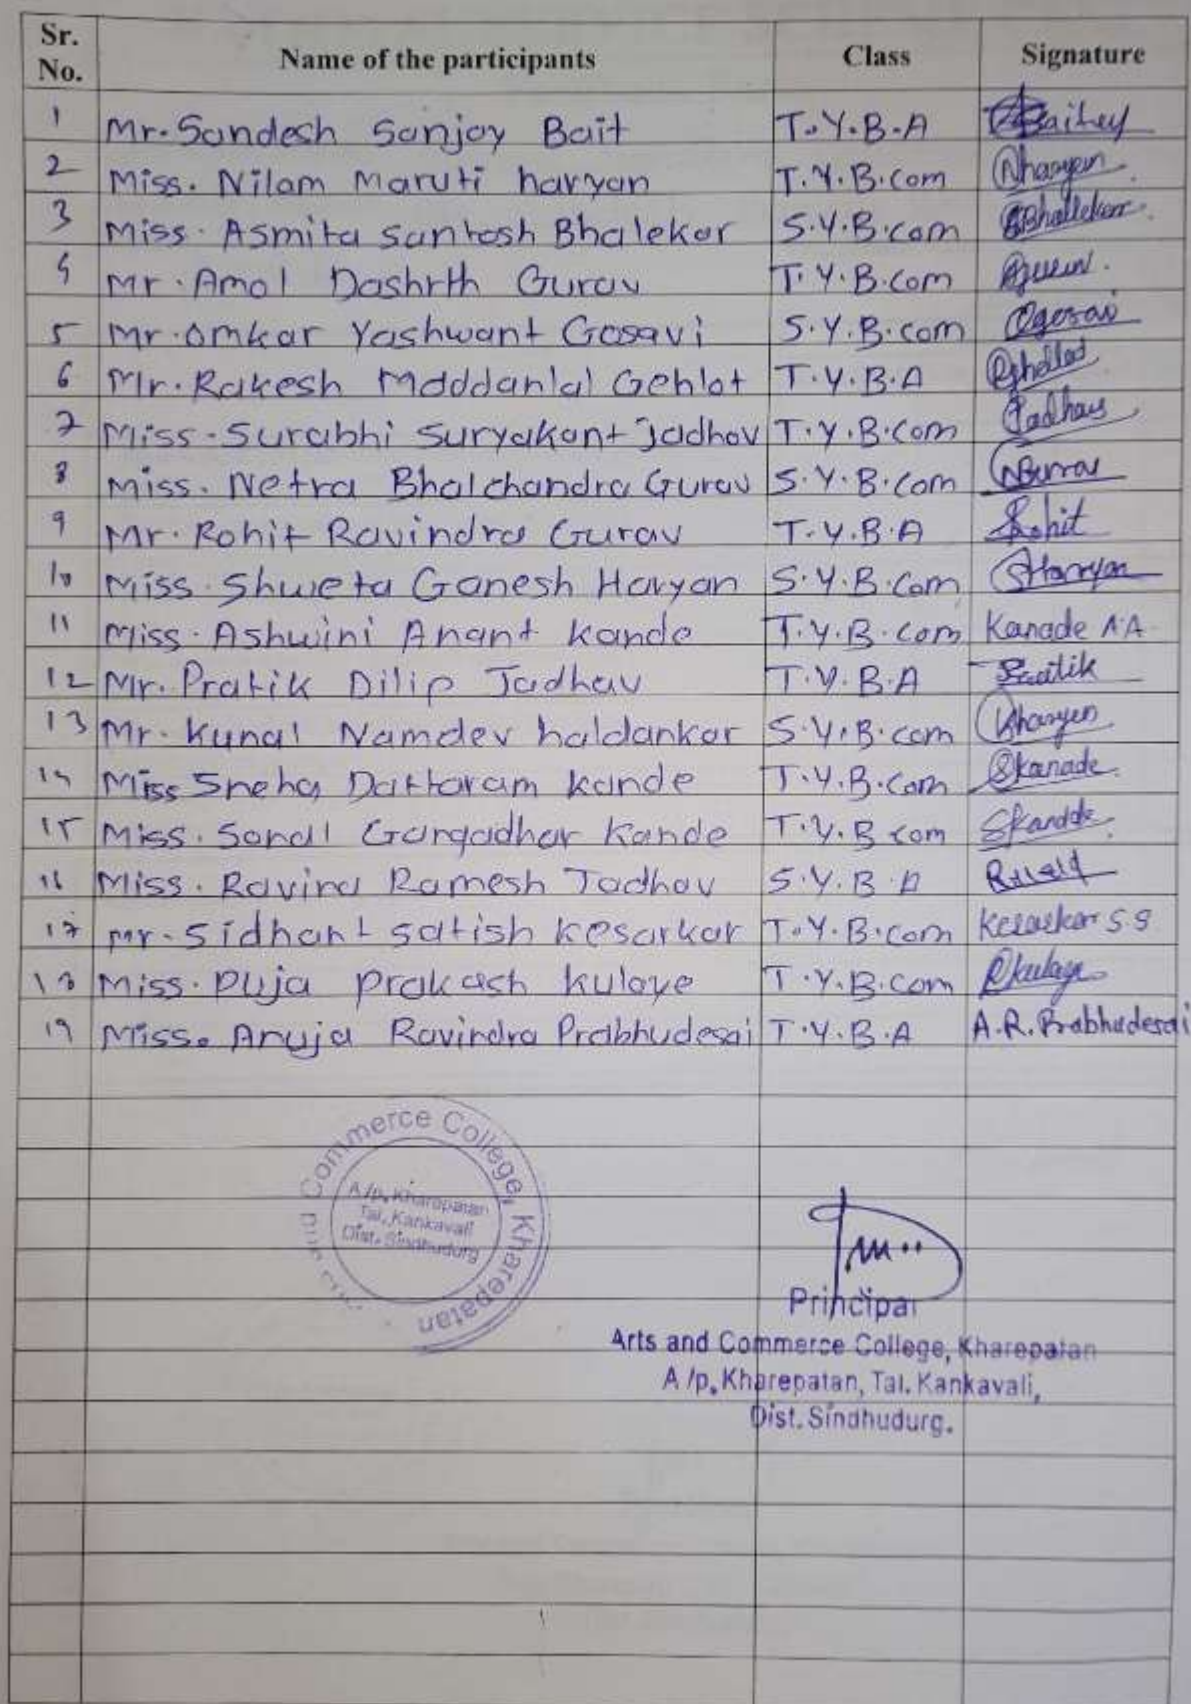 Sr. No. Name of the participants Class Signature
1 Mr. Sandesh Sanjay Bait T.Y.B.A
2 Miss. Nilam Maruti haryan T.Y.B.com Nharyan
3 Miss. Asmita Santosh Bhalekar S.Y.B.com Bhallekar
4 Mr. Amol Dashrth Gurav T.Y.B.com
5 Mr. Omkar Yashwant Gosavi S.Y.B.com Ogosavi
6 Mr. Rakesh Maddanlal Gehlot T.Y.B.A
7 Miss. Surabhi Suryakant Jadhav T.Y.B.com Jadhav
8 Miss. Netra Bhalchandra Gurav S.Y.B.com
9 Mr. Rohit Ravindra Gurav T.Y.B.A Rohit
10 Miss. Shweta Ganesh Haryan S.Y.B.com SHaryan
11 Miss. Ashwini Anant Kande T.Y.B.com Kanade A.A
12 Mr. Pratik Dilip Jadhav T.Y.B.A Pratik
13 Mr. Kunal Namdev haldankar S.Y.B.com
14 Miss Sneha Dattaram Kande T.Y.B.com Skanade
15 Miss. Sonal Gangadhar Kande T.Y.B com
16 Miss. Ravina Ramesh Jadhav S.Y.B.A
17 Mr. Sidhant Satish Kesarkar T.Y.B.com Kesarkar S.S
18 Miss. Puja Prakash Kulaye T.Y.B.com Pkulaye
19 Miss. Anuja Ravindra Prabhudesai T.Y.B.A A.R.Prabhudesai
Commerce College, Kharepatan
A/p. Kharepatan
Tal. Kankavali
Dist. Sindhudurg
Principal
Arts and Commerce College, Kharepatan
A/p. Kharepatan, Tal. Kankavali,
Dist. Sindhudurg.